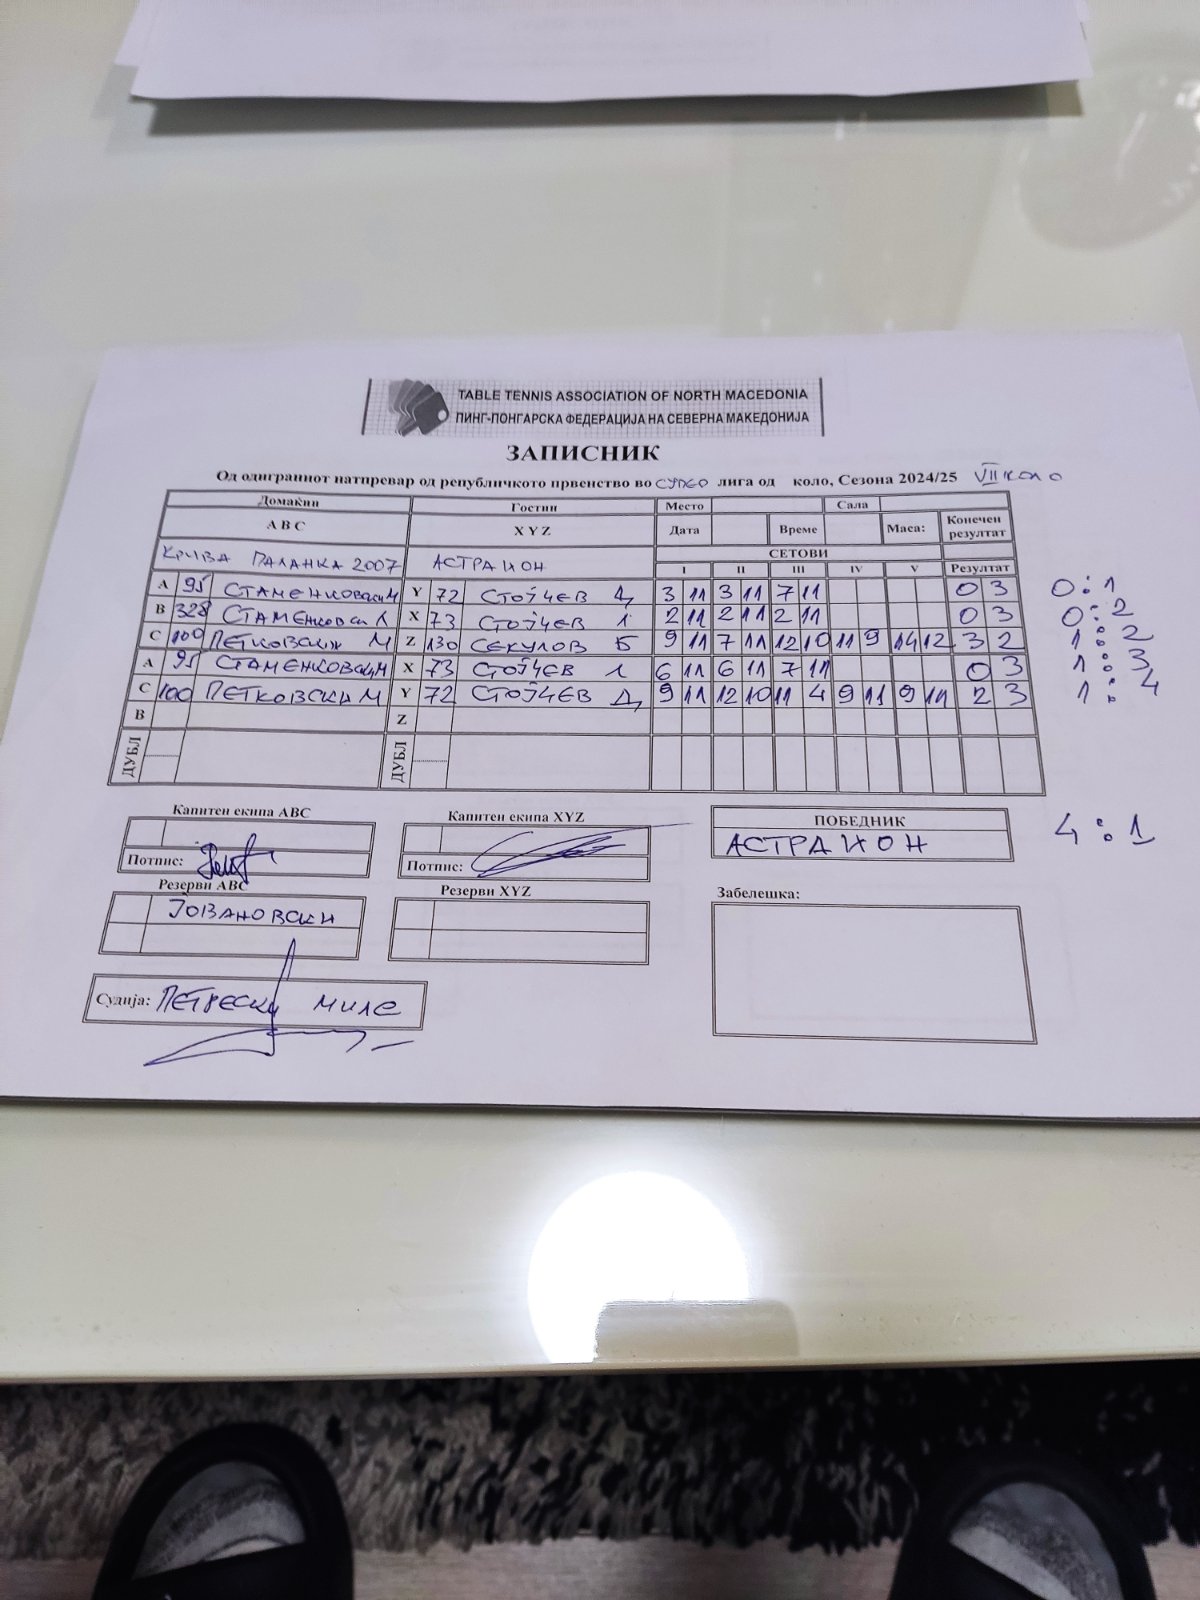 TABLE TENNIS ASSOCIATION OF NORTH MACEDONIA
ПИНГ-ПОНГАРСКА ФЕДЕРАЦИЈА НА СЕВЕРНА МАКЕДОНИЈА
ЗАПИСНИК
Од одиграниот натпревар од републичкото првенство во СУПЕР лига од коло, Сезона 2024/25 VII КОЛО
Домаќин Гостин Место Сала
A B C X Y Z Дата Време Маса: Конечен резултат
КРИВА ПАЛАНКА 2007 АСТРАИОН СЕТОВИ
I II III IV V Резултат
A 95 СТАМЕНКОВСКИ М Y 72 СТОЈЧЕВ Д 3 11 3 11 7 11 0 3 0:1
B 328 СТАМЕНКОВСКИ Л X 73 СТОЈЧЕВ Л 2 11 2 11 2 11 0 3 0:2
C 100 ПЕТКОВСКИ М Z 130 СЕКУЛОВ Б 9 11 7 11 12 10 11 9 14 12 3 2 1:2
A 95 СТАМЕНКОВСКИ М X 73 СТОЈЧЕВ Л 6 11 6 11 7 11 0 3 1:3
C 100 ПЕТКОВСКИ М Y 72 СТОЈЧЕВ Д 9 11 12 10 11 4 9 11 9 11 2 3 1:4
B Z
ДУБЛ ДУБЛ
Капитен екипа ABC Капитен екипа XYZ ПОБЕДНИК
АСТРАИОН 4:1
Потпис: Потпис:
Резерви ABC Резерви XYZ Забелешка:
ЈОВАНОВСКИ
Судија: ПЕТРЕСКИ МИЛЕ